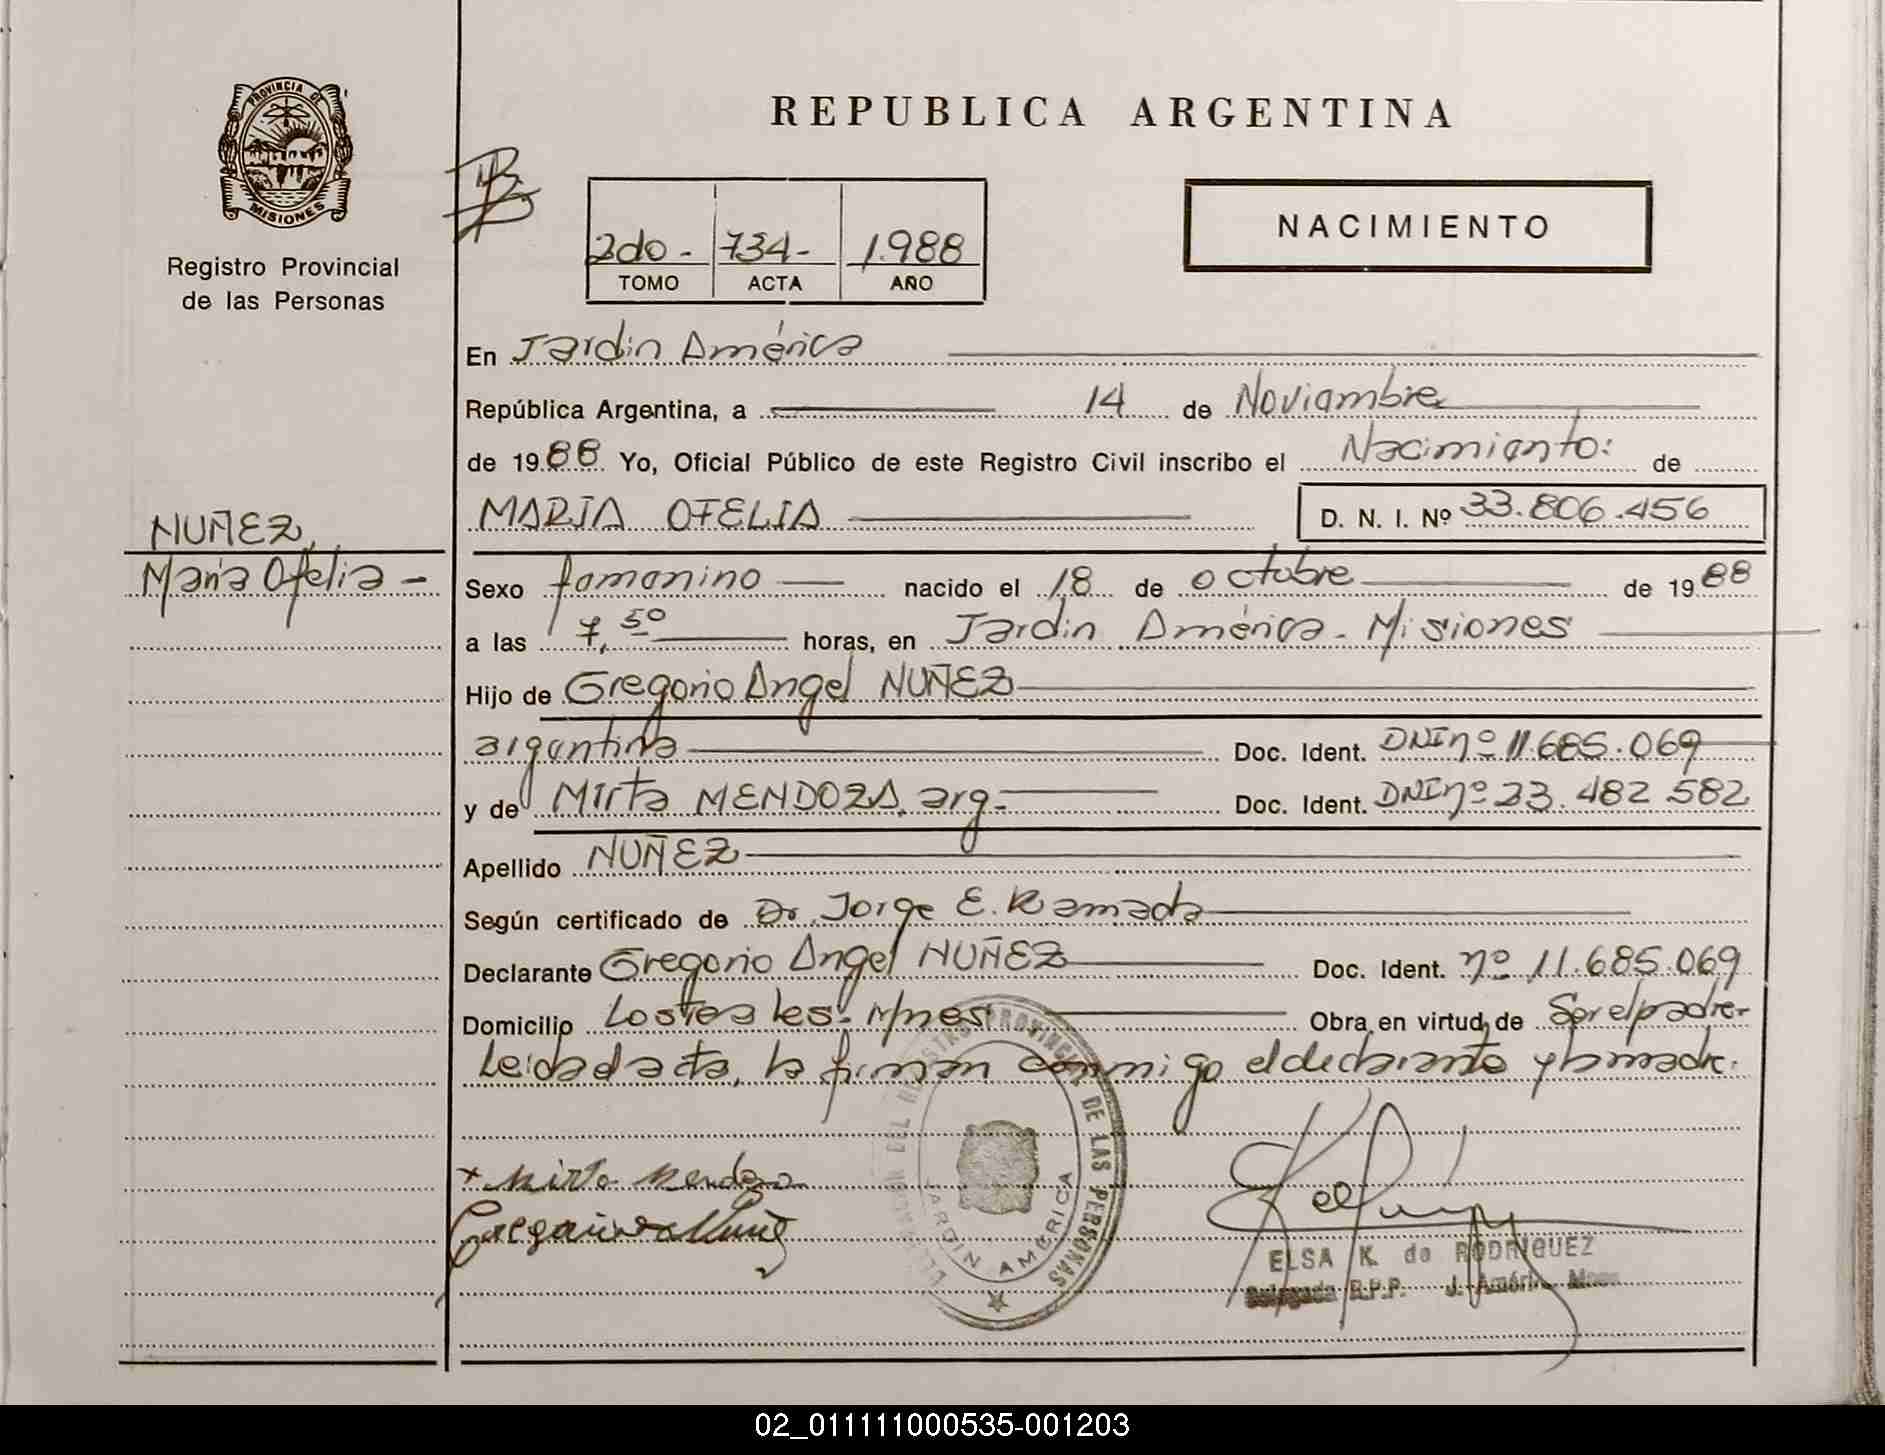 PROVINCIA DE
MISIONES
Registro Provincial
de las Personas
REPUBLICA ARGENTINA
NACIMIENTO
2do - 734- 1.988
TOMO ACTA AÑO
En Jardin América
República Argentina, a 14 de Noviembre
de 1988 Yo, Oficial Público de este Registro Civil inscribo el Nacimiento: de
MARIA OFELIA D. N. I. Nº 33.806.456
NUÑEZ,
Maria Ofelia -
Sexo femenino nacido el 18 de octubre de 1988
a las 7,50 horas, en Jardin América - Misiones
Hijo de Gregorio Angel NUÑEZ
argentina Doc. Ident. DNI nº 11.685.069
y de Mirta MENDOZA, arg. Doc. Ident. DNI nº 23.482 582
Apellido NUÑEZ
Según certificado de Dr. Jorge E. Ramada
Declarante Gregorio Angel NUÑEZ Doc. Ident. nº 11.685.069
Domicilio Los Teales - Mnes Obra en virtud de Ser el padre -
Leida el acta, la firman conmigo el declarante y la madre.
DEL REGISTRO PROVINCIAL DE LAS PERSONAS
JARDIN AMERICA
+ Mirta Mendoza
Nuñez
ELSA K. de RODRIGUEZ
Delegada R.P.P. J. América Mnes
02_011111000535-001203